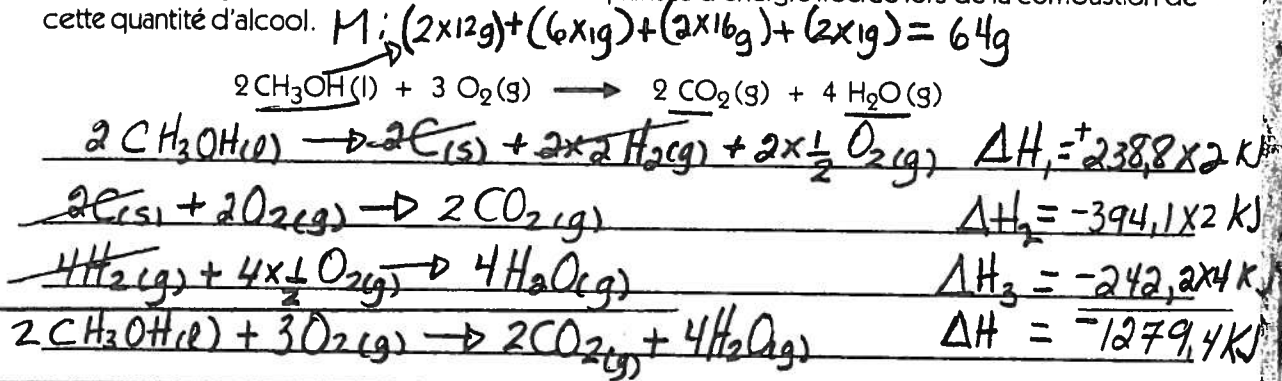 cette quantité d'alcool. M: (2x12g)+(6x1g)+(2x16g)+(2x1g)= 64g
2 CH₃OH(l) + 3 O₂(g) ⟶ 2 CO₂(g) + 4 H₂O(g)
2 CH₃OH(l) → 2C(s) + 2x2 H₂(g) + 2x½ O₂(g) ΔH₁=+238,8x2 KJ
2C(s) + 2O₂(g) → 2 CO₂(g) ΔH₂= -394,1x2 KJ
4H₂(g) + 4x½ O₂(g) → 4H₂O(g) ΔH₃ = -242,2x4 KJ
2CH₃OH(l) + 3O₂(g) → 2CO₂(g) + 4H₂O(g) ΔH = -1279,4KJ